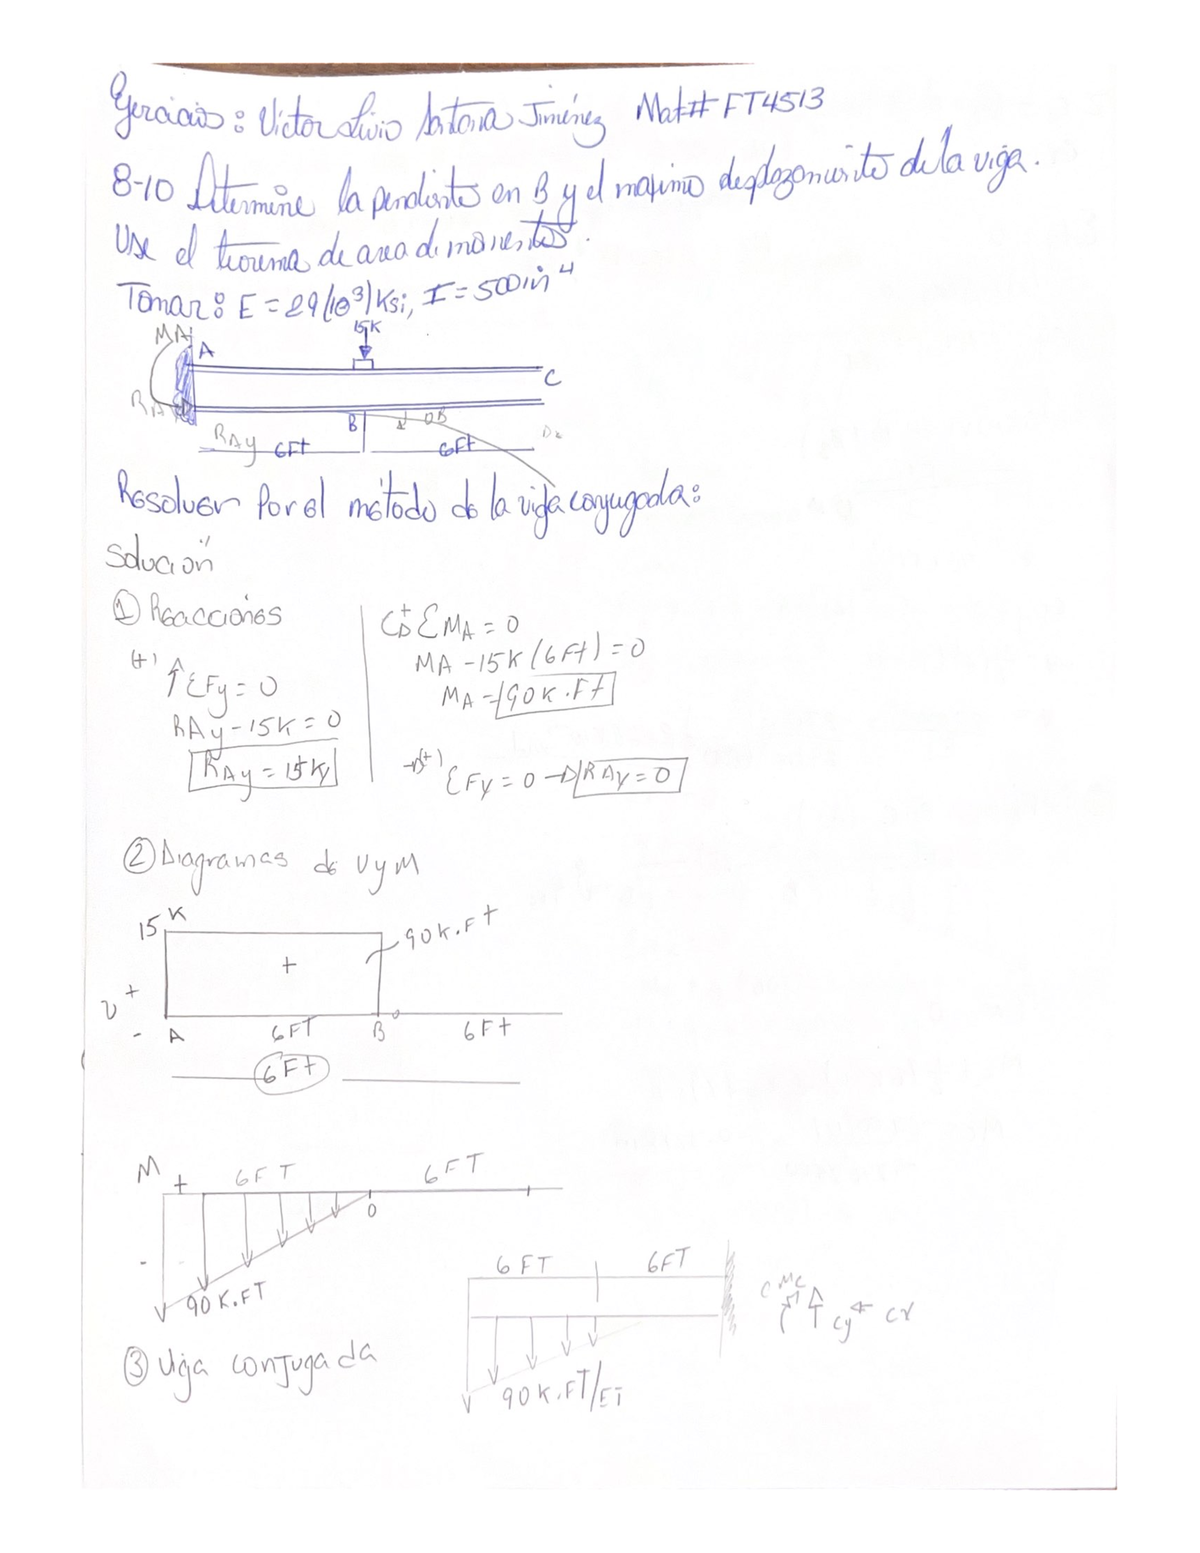 Ejercicio: Victor Livio Jiménez Mat# FT4513
8-10 Determine la pendiente en B y el maximo desplazamiento de la viga.
Use el teorema de area de momentos.
Tomar: E = 29(10³) Ksi, I = 500 in⁴
15K
MA
A
C
RA
B
θB
RAy 6Ft 6Ft
Resolver Por el método de la viga conjugada:
Solución
① Reacciones
(+) ↑ΣFy = 0
RAy - 15K = 0
RAy = 15K
+ ΣMA = 0
MA - 15K (6Ft) = 0
MA = 90K.Ft
(+) ΣFx = 0 → RAx = 0
② Diagramas de V y M
15 K
90K.Ft
+
V +
-
A 6FT B 0 6Ft
6Ft
M + 6FT 6FT
0
-
90 K.FT
6FT 6FT
C Mc Cy Cx
③ Viga conjugada
90K.FT/EI